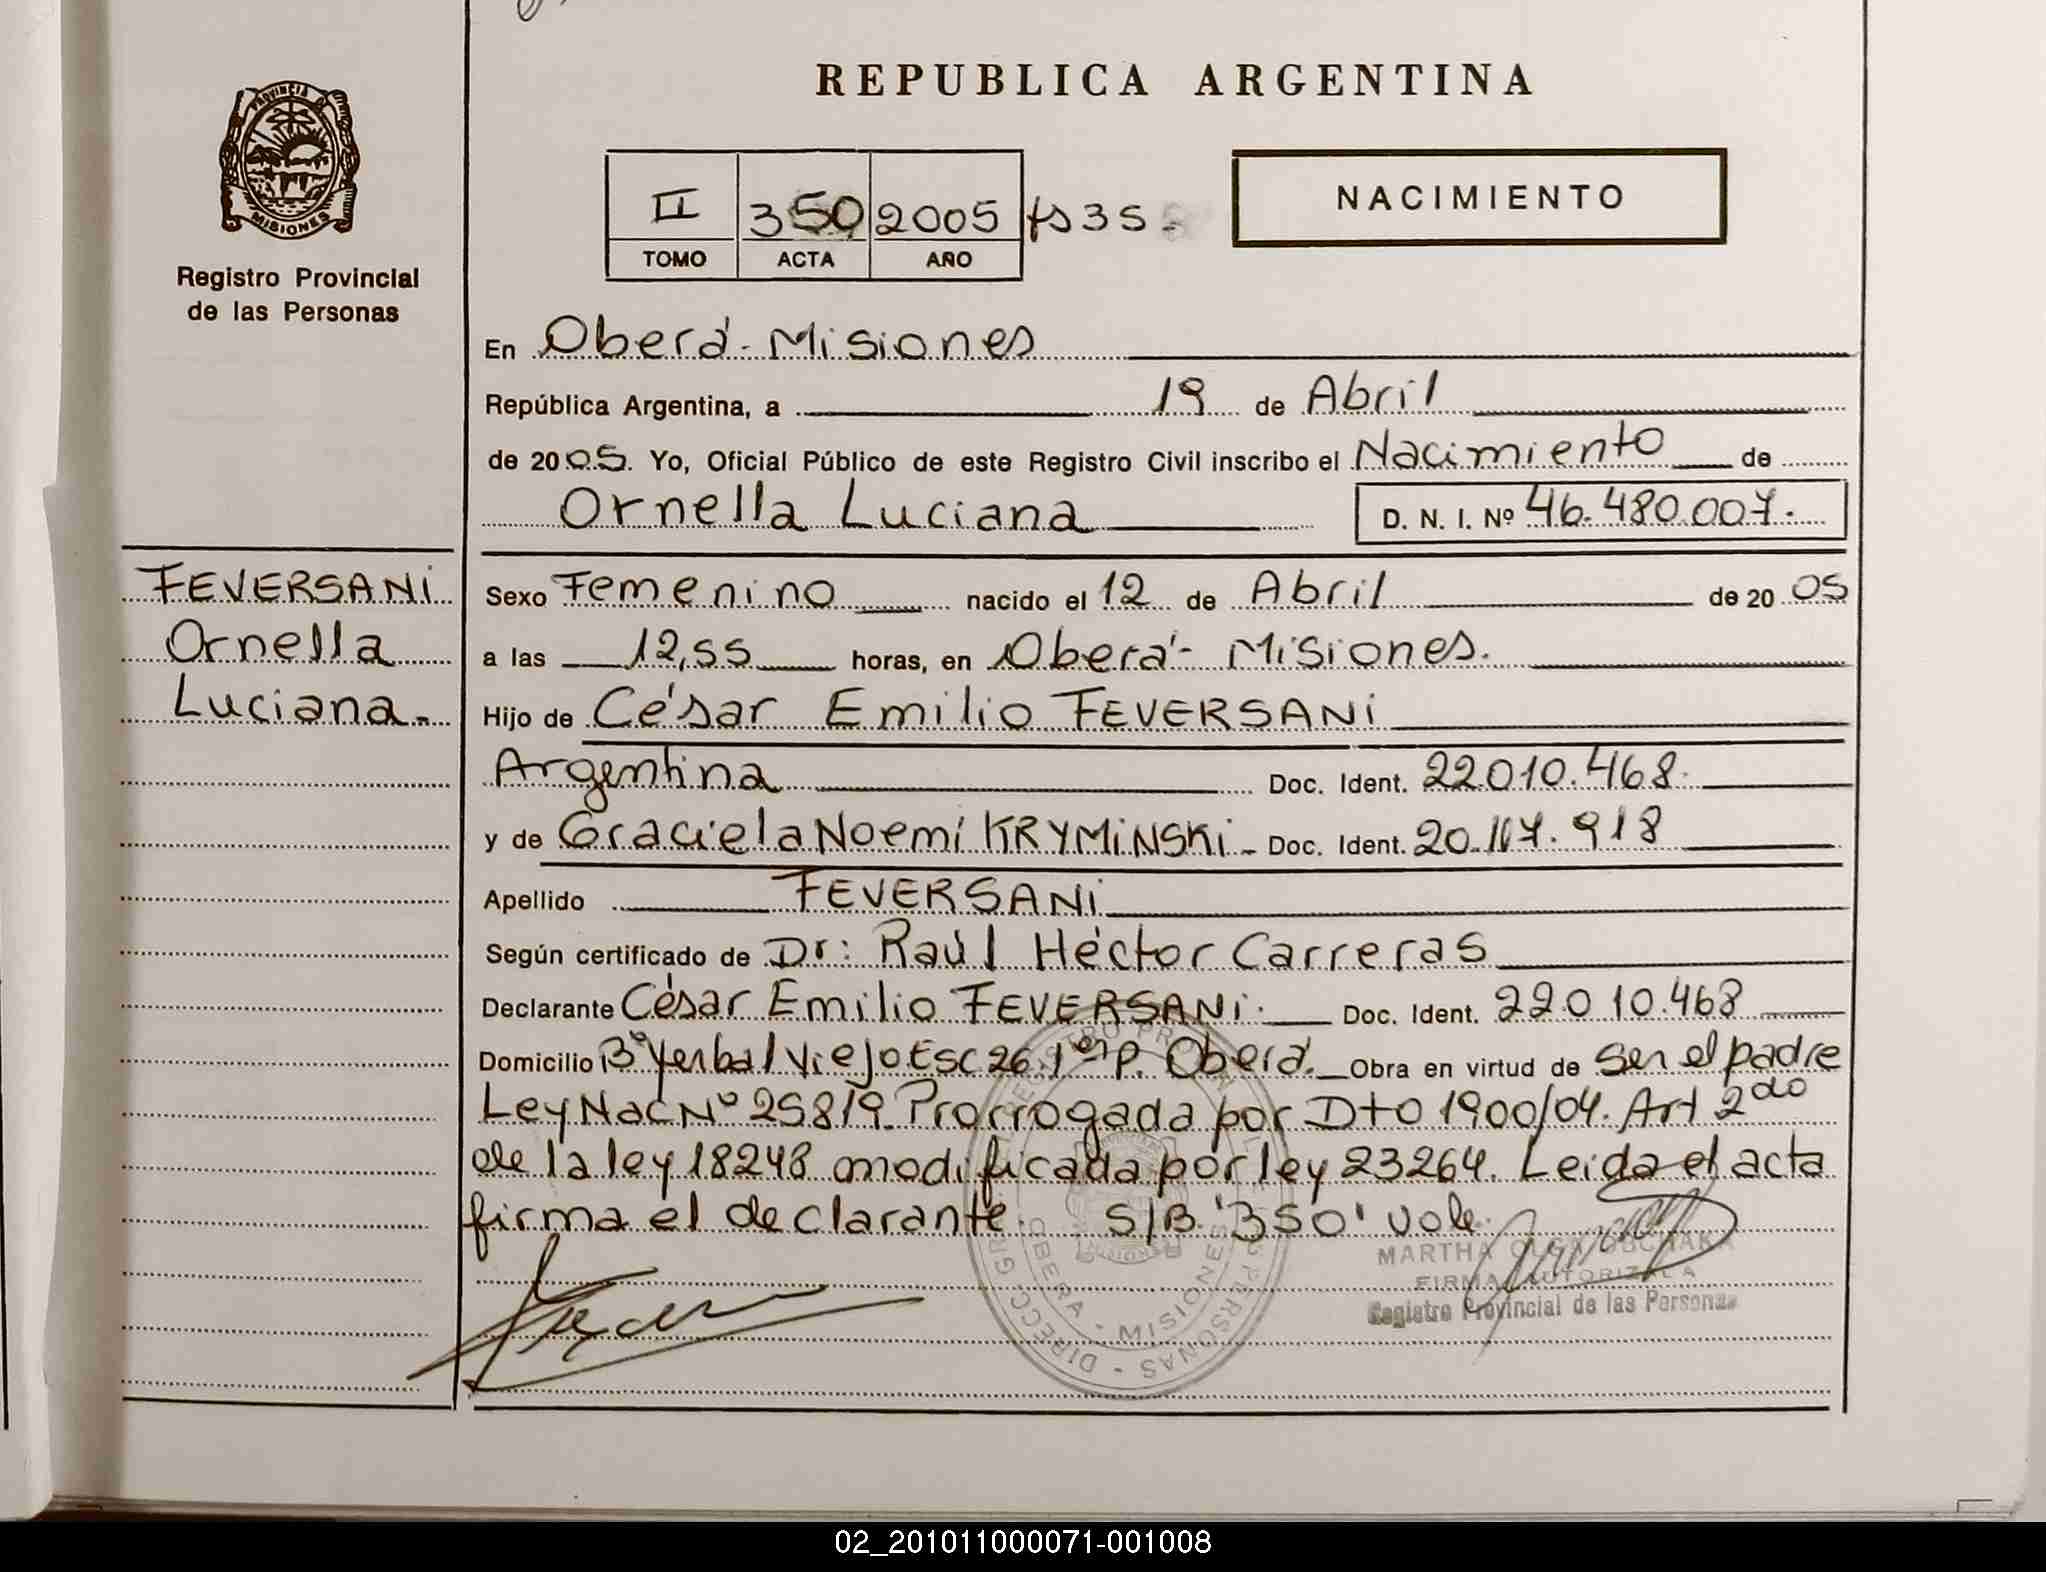 REPUBLICA ARGENTINA
PROVINCIA D MISIONES
Registro Provincial
de las Personas
NACIMIENTO
II 350 2005 fs 35
TOMO ACTA AÑO
En Oberá - Misiones
República Argentina, a 19 de Abril
de 2005. Yo, Oficial Público de este Registro Civil inscribo el Nacimiento de
Ornella Luciana D. N. I. Nº 46.480.007.
FEVERSANi
Ornella
Luciana.-
Sexo Femenino nacido el 12 de Abril de 2005
a las 12,55 horas, en Oberá - Misiones.
Hijo de César Emilio FEVERSANi
Argentina Doc. Ident. 22.010.468.
y de Graciela Noemí KRYMiNSKi - Doc. Ident. 20.117.918
Apellido FEVERSANi
Según certificado de Dr: Raúl Héctor Carreras
Declarante César Emilio FEVERSANi. Doc. Ident. 22.010.468
Domicilio Bº Yerbal Viejo Esc 26. 1er P. Oberá. Obra en virtud de ser el padre
Ley Nac Nº 25819. Prorrogada por Dto 1900/04. Art 2do
de la ley 18248 modificada por ley 23264. Leida el acta
firma el declarante. S/B. '350' vale.
MARTHA OLGA
FIRMA AUTORIZADA
Registro Provincial de las Personas
OBERA - MISIONES
02_201011000071-001008